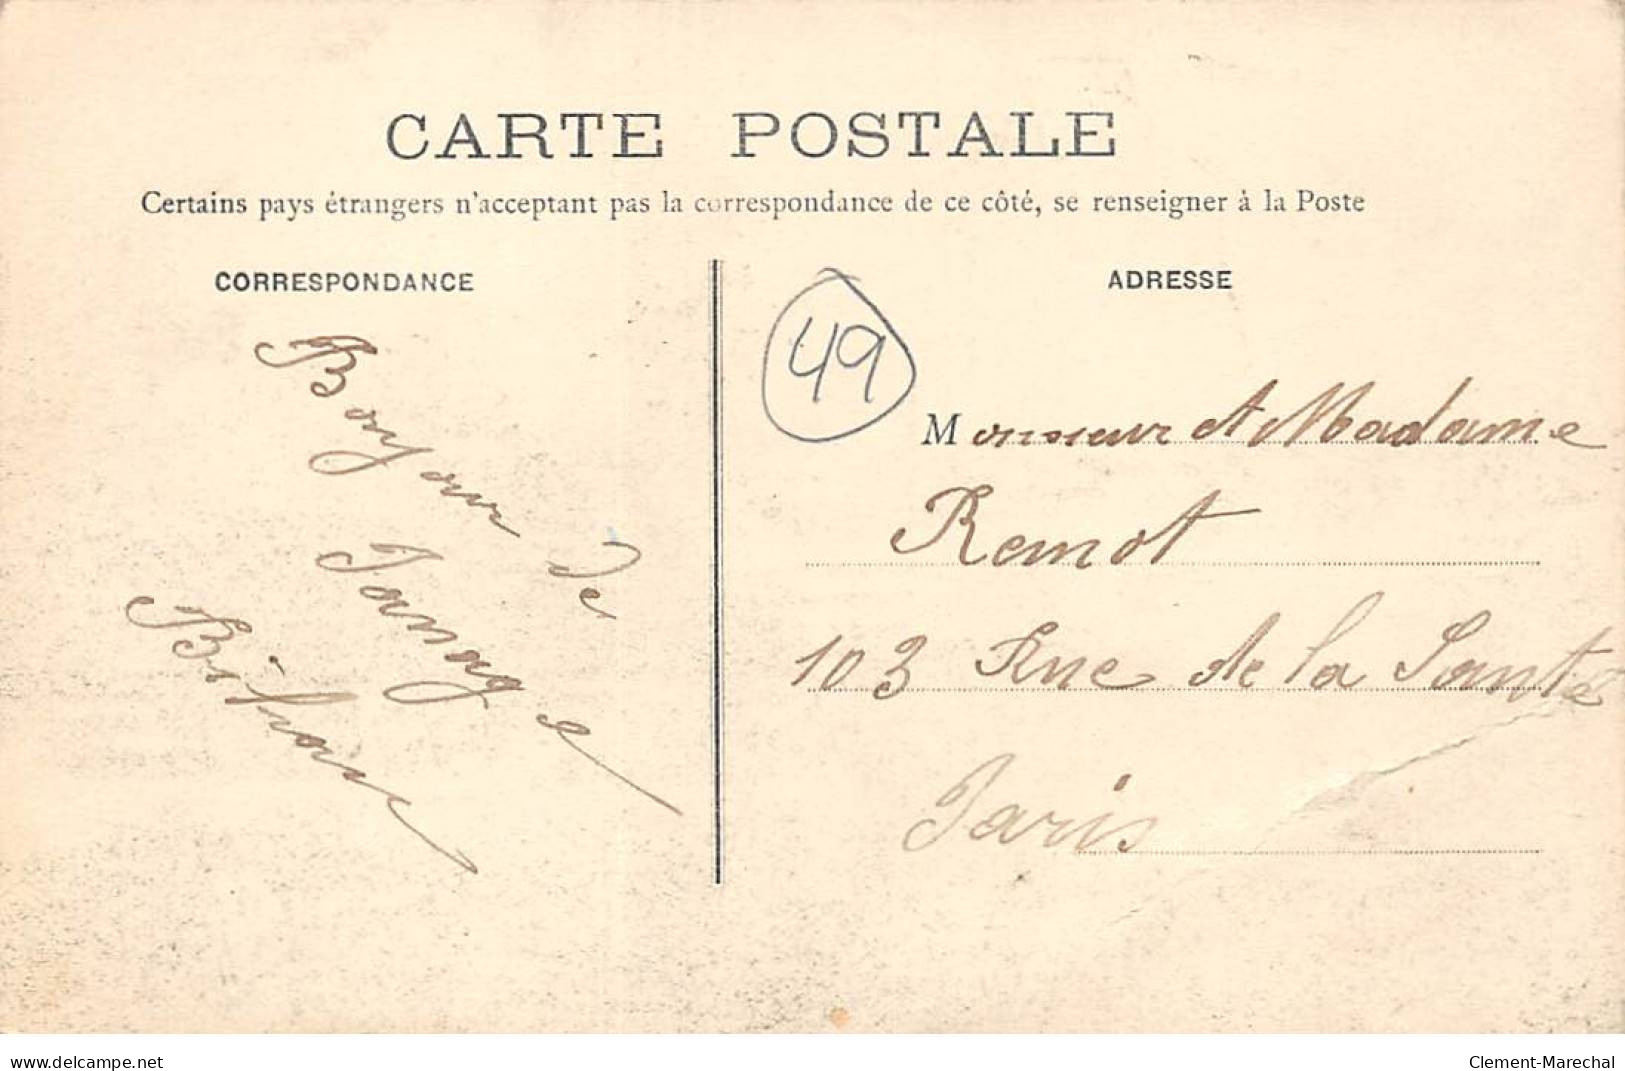 CARTE POSTALE
Certains pays étrangers n'acceptant pas la correspondance de ce côté, se renseigner à la Poste
CORRESPONDANCE
ADRESSE
49
Bonjour de
Monsieur et Madame
Remot
103 Rue de la Santé
Paris
www.delcampe.net
Clement-Marechal